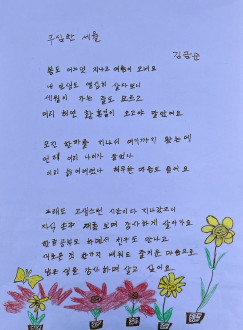 무심한 세월
김금순
봄도 어느덧 지나고 여름이 오네요
내 인생도 열심히 살아보니
세월이 가는 줄도 모르고
머리 하얀 할머니가 되고야 말았네요
모진 한파를 지나서 여기까지 왔는데
언제 이리 나이가 들었나
이리 늙어버렸나 허무한 마음도 들어요
그래도 고생스런 시간이 다 지나갔으니
지난 날을 감사하며 살아가요
한글공부도 하면서 친구도 만나고
새로운 것 한가지 배워도 즐거운 마음으로
남은 생을 감사하며 살고 싶어요